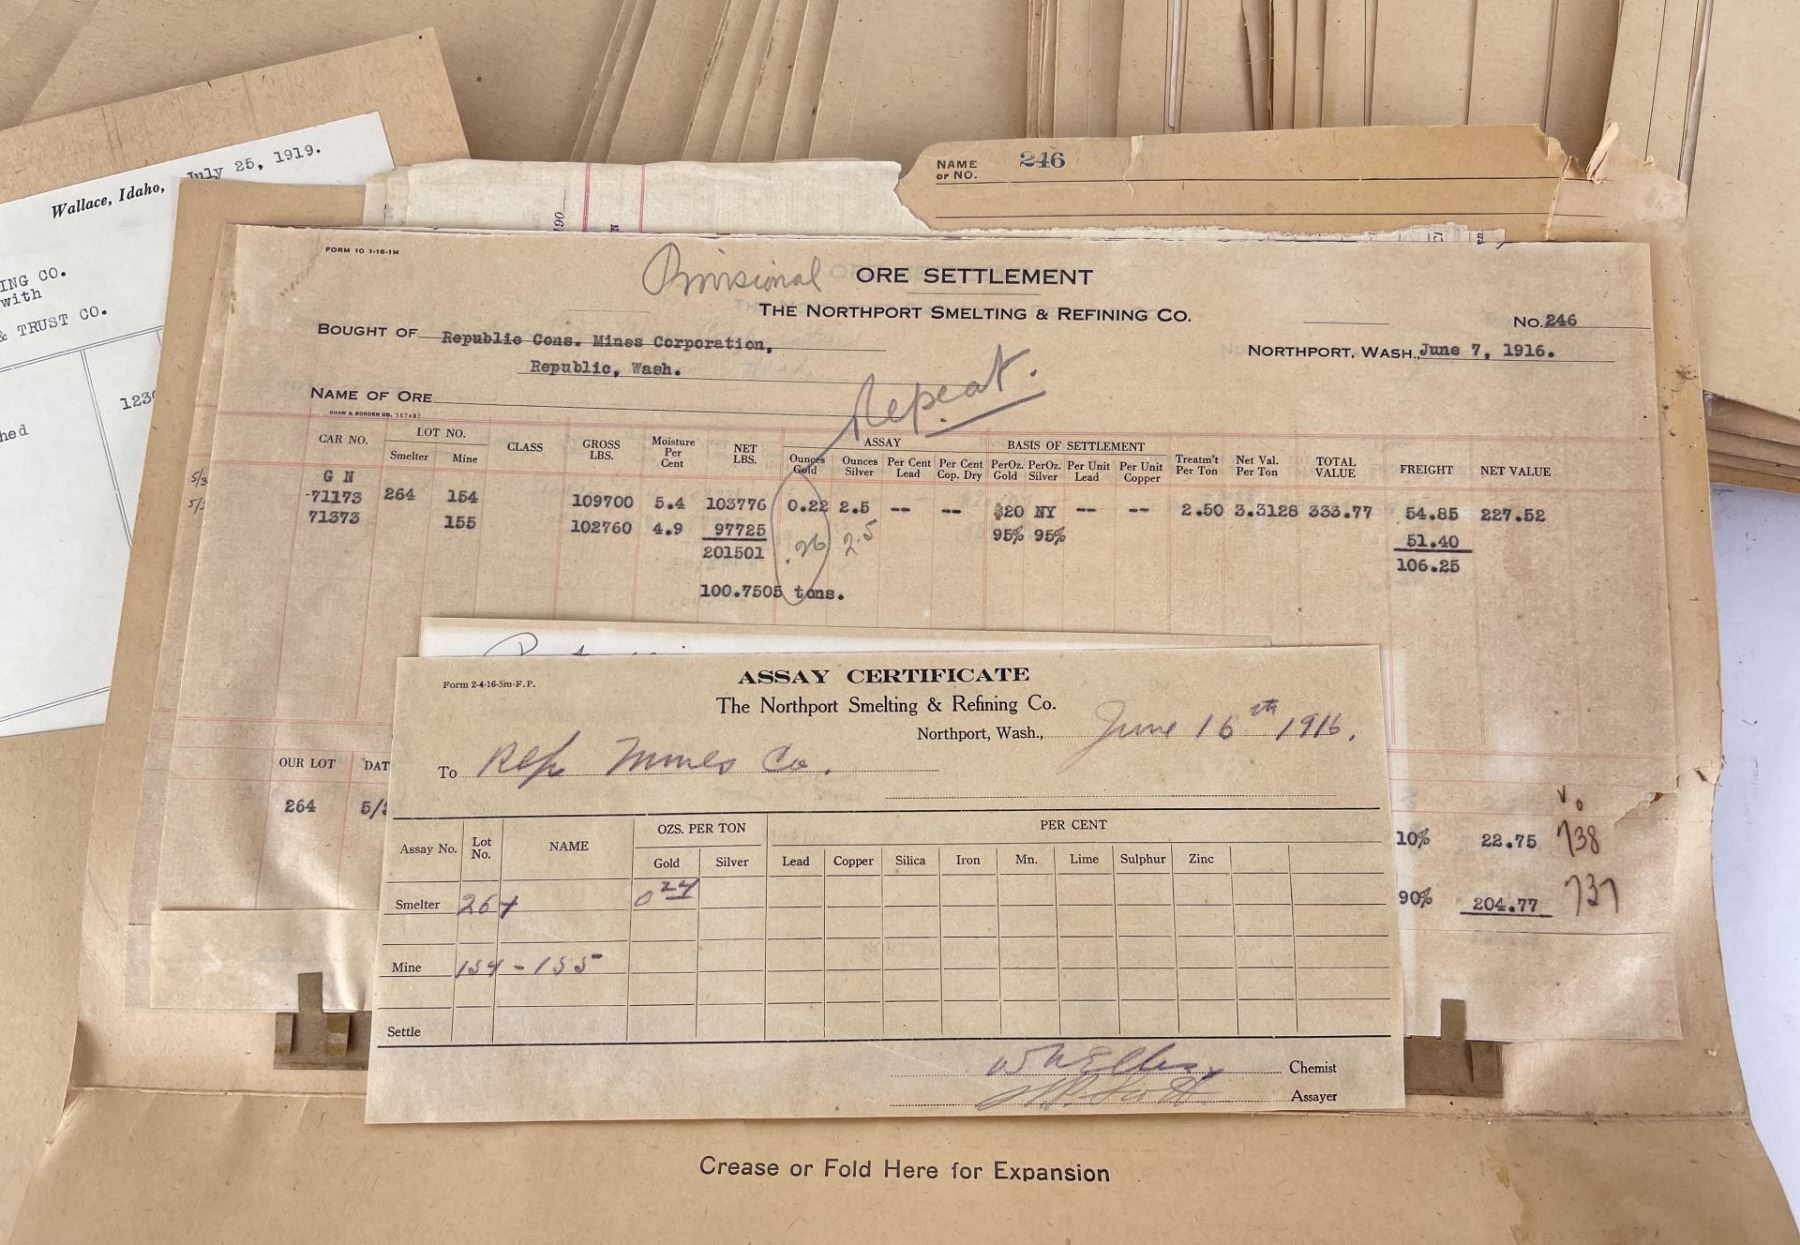 Wallace, Idaho, July 25, 1919.
ING CO.
with
& TRUST CO.
1230
hed
NAME or NO. 246
FORM 10 1-16-1M
Provisional ORE SETTLEMENT
THE NORTHPORT SMELTING & REFINING CO.
No. 246
BOUGHT OF Republic Cons. Mines Corporation,
Republic, Wash.
NORTHPORT, WASH., June 7, 1916.
Repeat.
NAME OF ORE
SHAW & BORDEN CO. 157487
CAR NO. LOT NO. Smelter Mine CLASS GROSS LBS. Moisture Per Cent NET LBS. ASSAY Ounces Gold Ounces Silver Per Cent Lead Per Cent Cop. Dry BASIS OF SETTLEMENT PerOz. Gold PerOz. Silver Per Unit Lead Per Unit Copper Treatm't Per Ton Net Val. Per Ton TOTAL VALUE FREIGHT NET VALUE
5/3 G N
71173 264 154 109700 5.4 103776 0.22 2.5 -- -- $20 NY -- -- 2.50 3.3128 333.77 54.85 227.52
71373 155 102760 4.9 97725 .26 2.5 95% 95% 51.40
201501 106.25
100.7505 tons.
OUR LOT DAT
264 5/2
10% 22.75 738
90% 204.77 737
Form 2-4-16-5m-F.P.
ASSAY CERTIFICATE
The Northport Smelting & Refining Co.
Northport, Wash., June 16th 1916.
To Rep Mines Co.
Assay No. Lot No. NAME OZS. PER TON Gold Silver PER CENT Lead Copper Silica Iron Mn. Lime Sulphur Zinc
Smelter 264 0 24
Mine 154-155
Settle
Chemist
Assayer
Crease or Fold Here for Expansion